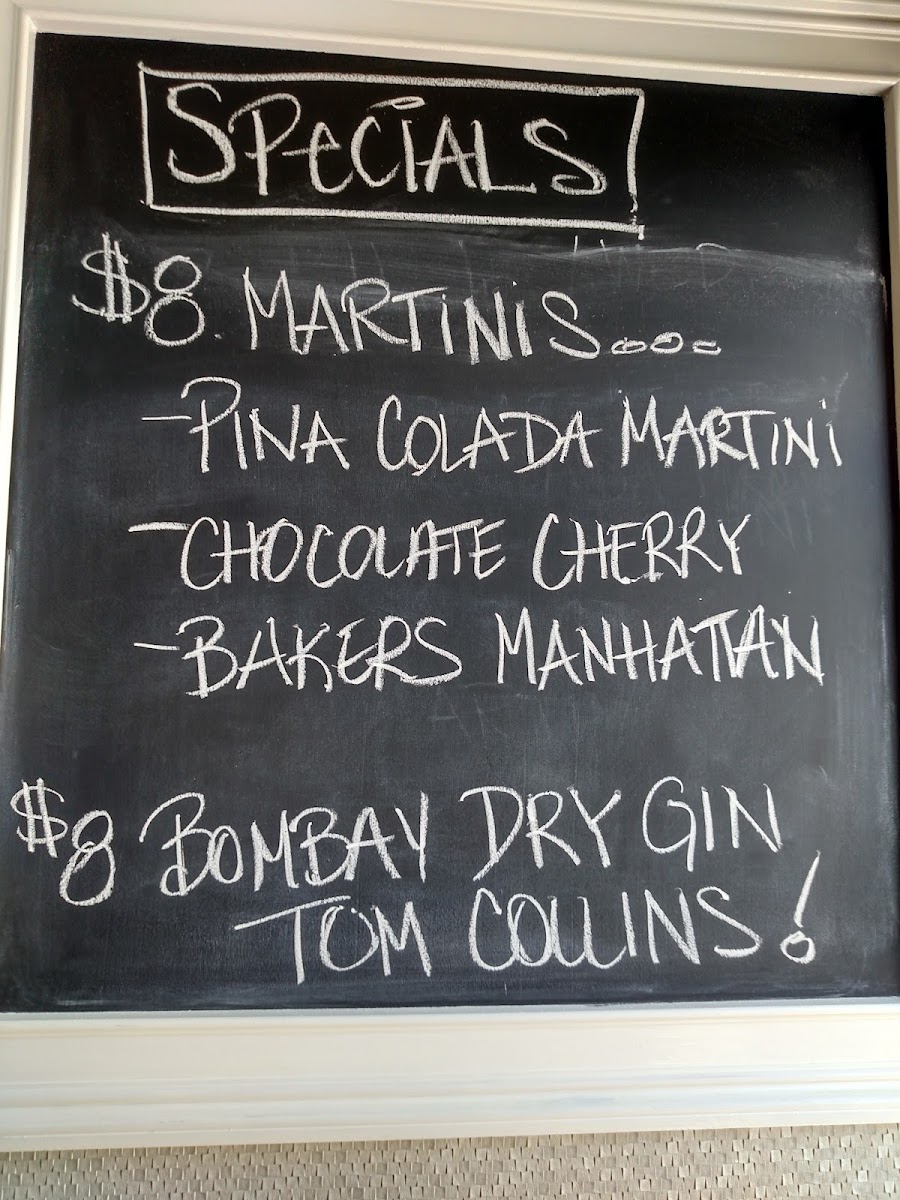 SPeCIALS
$8 MARTiNiS....
-PINA COLADA MARTiNi
-CHOCOLATE CHERRY
-BAKERS MANHATTAN
$8 BOMBAY DRY GIN
TOM COLLINS!